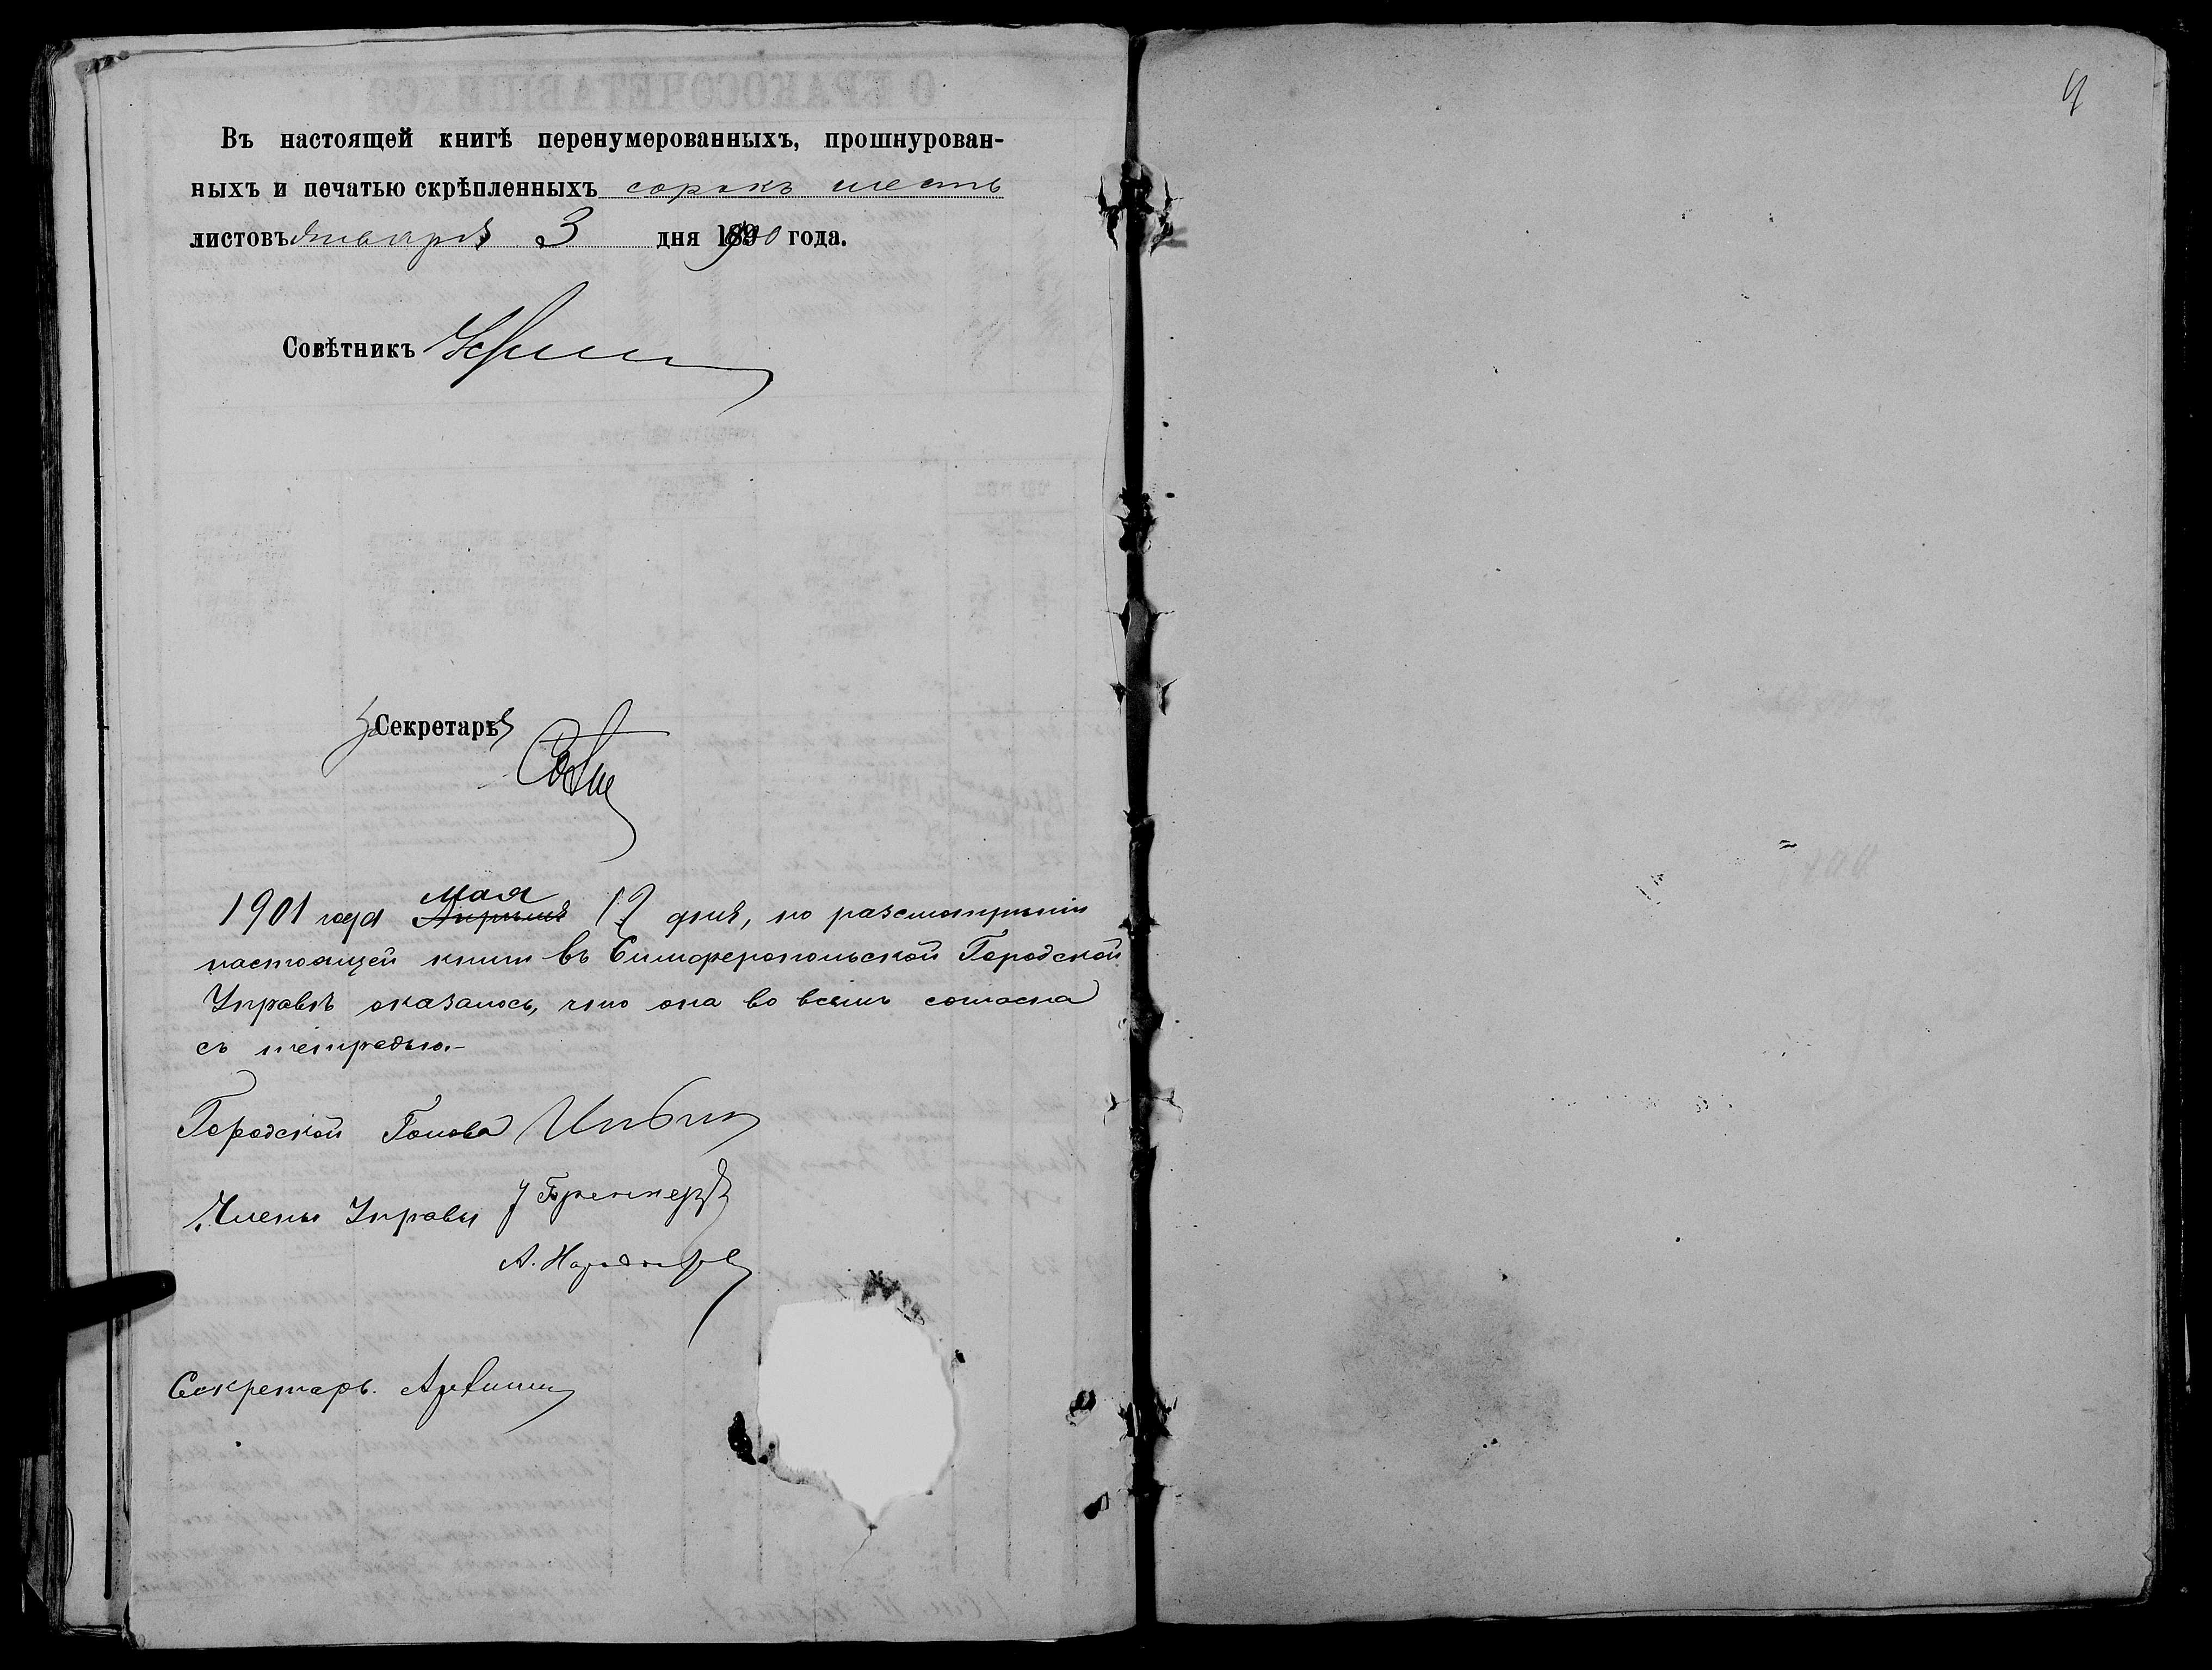 Въ настоящей книгѣ перенумерованныхъ, прошнурован-
ныхъ и печатью скрѣпленныхъ сорокъ шесть
листовъ января 3 дня 1900 года.
Совѣтникъ
За Секретаря
мая
1901 года Апрѣля 12 дня, по разсмотрѣніи
настоящей книги въ Симферопольской Городской
Управѣ оказалось, что она во всемъ согласна
съ тетрадью.-
Городской Голова
Члены Управы
Секретарь.